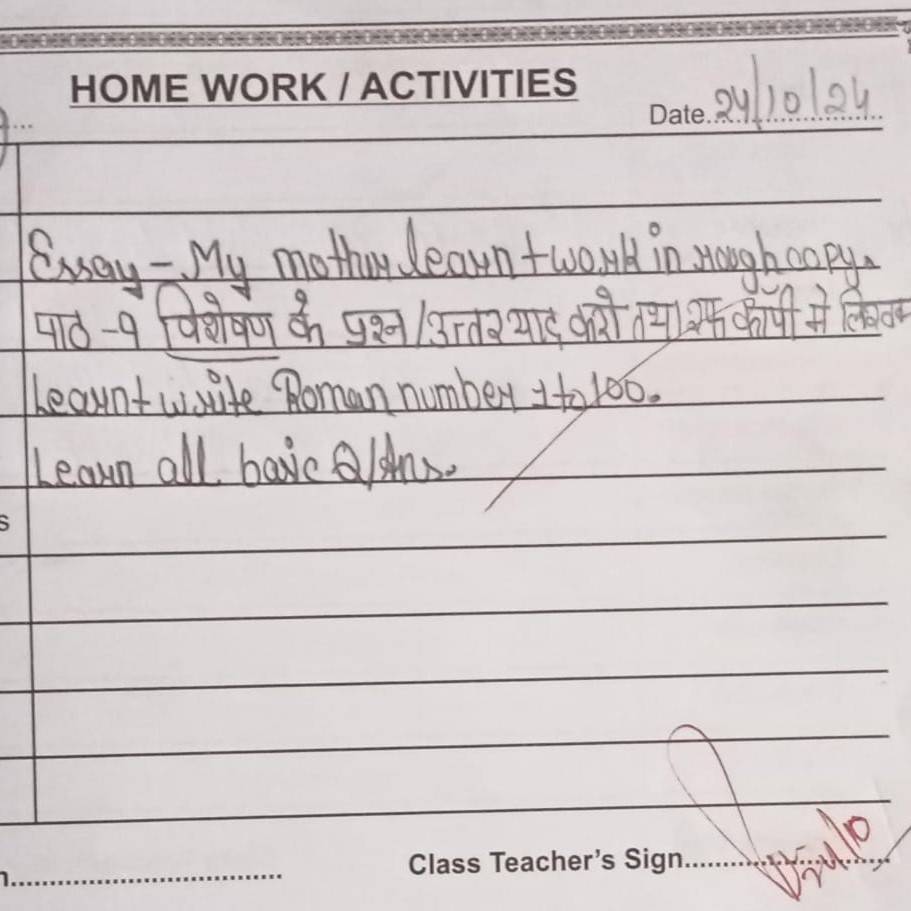 HOME WORK / ACTIVITIES
Date 24/10/24
Essay - My mother learn + work in rough copy.
पाठ -9 विशेषण के प्रश्न/उत्तर याद करो तथा रफ कॉपी में
Learn + write Roman number 1 to 100.
Learn all basic Q/Ans.
s
Class Teacher's Sign
24/10